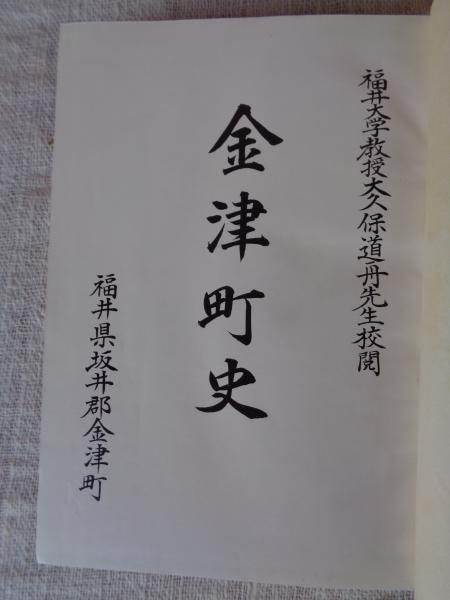 福井大学教授大久保道舟先生校閲
金津町史
福井県坂井郡金津町